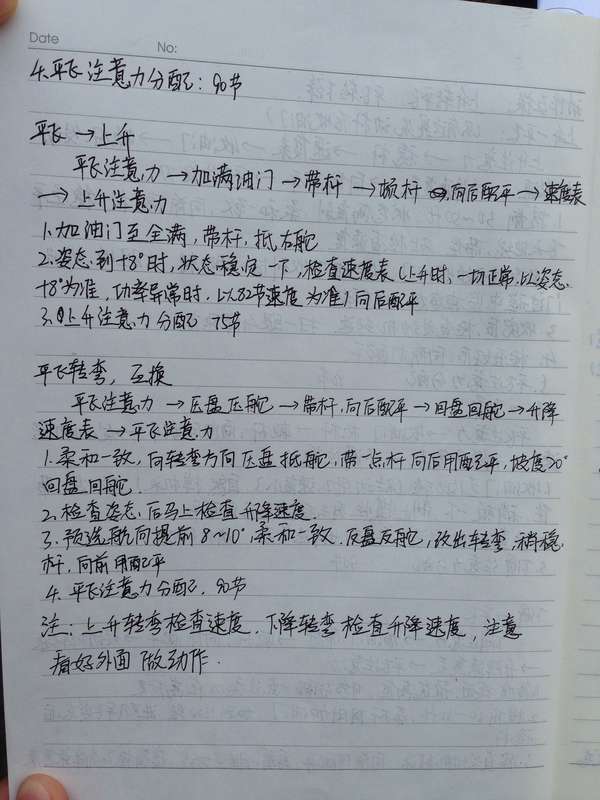 Date
No:
4.平飞注意力分配：90节
平飞→上升
平飞注意力→加满油门→带杆→顶杆 向后配平→速度表
→上升注意力
1.加油门至全满，带杆，抵右舵
2.姿态到+8°时，状态稳定一下，检查速度表(上升时，一切正常，以姿态
+8°为准，功率异常时，以82节速度为准)向后配平
3.上升注意力分配 75节
平飞转弯，互换
平飞注意力→压盘压舵→带杆，向后配平→回盘回舵→升降
速度表→平飞注意力
1.柔和一致，向转弯方向压盘抵舵，带一点杆向后用配平，坡度20°
回盘回舵.
2.检查姿态，后马上检查升降速度.
3.预选航向提前8~10°，柔和一致.反盘反舵，改出转弯，稍稳
杆，向前用配平
4.平飞注意力分配，90节
注：上升转弯检查速度，下降转弯检查升降速度，注意
看好外面做动作.